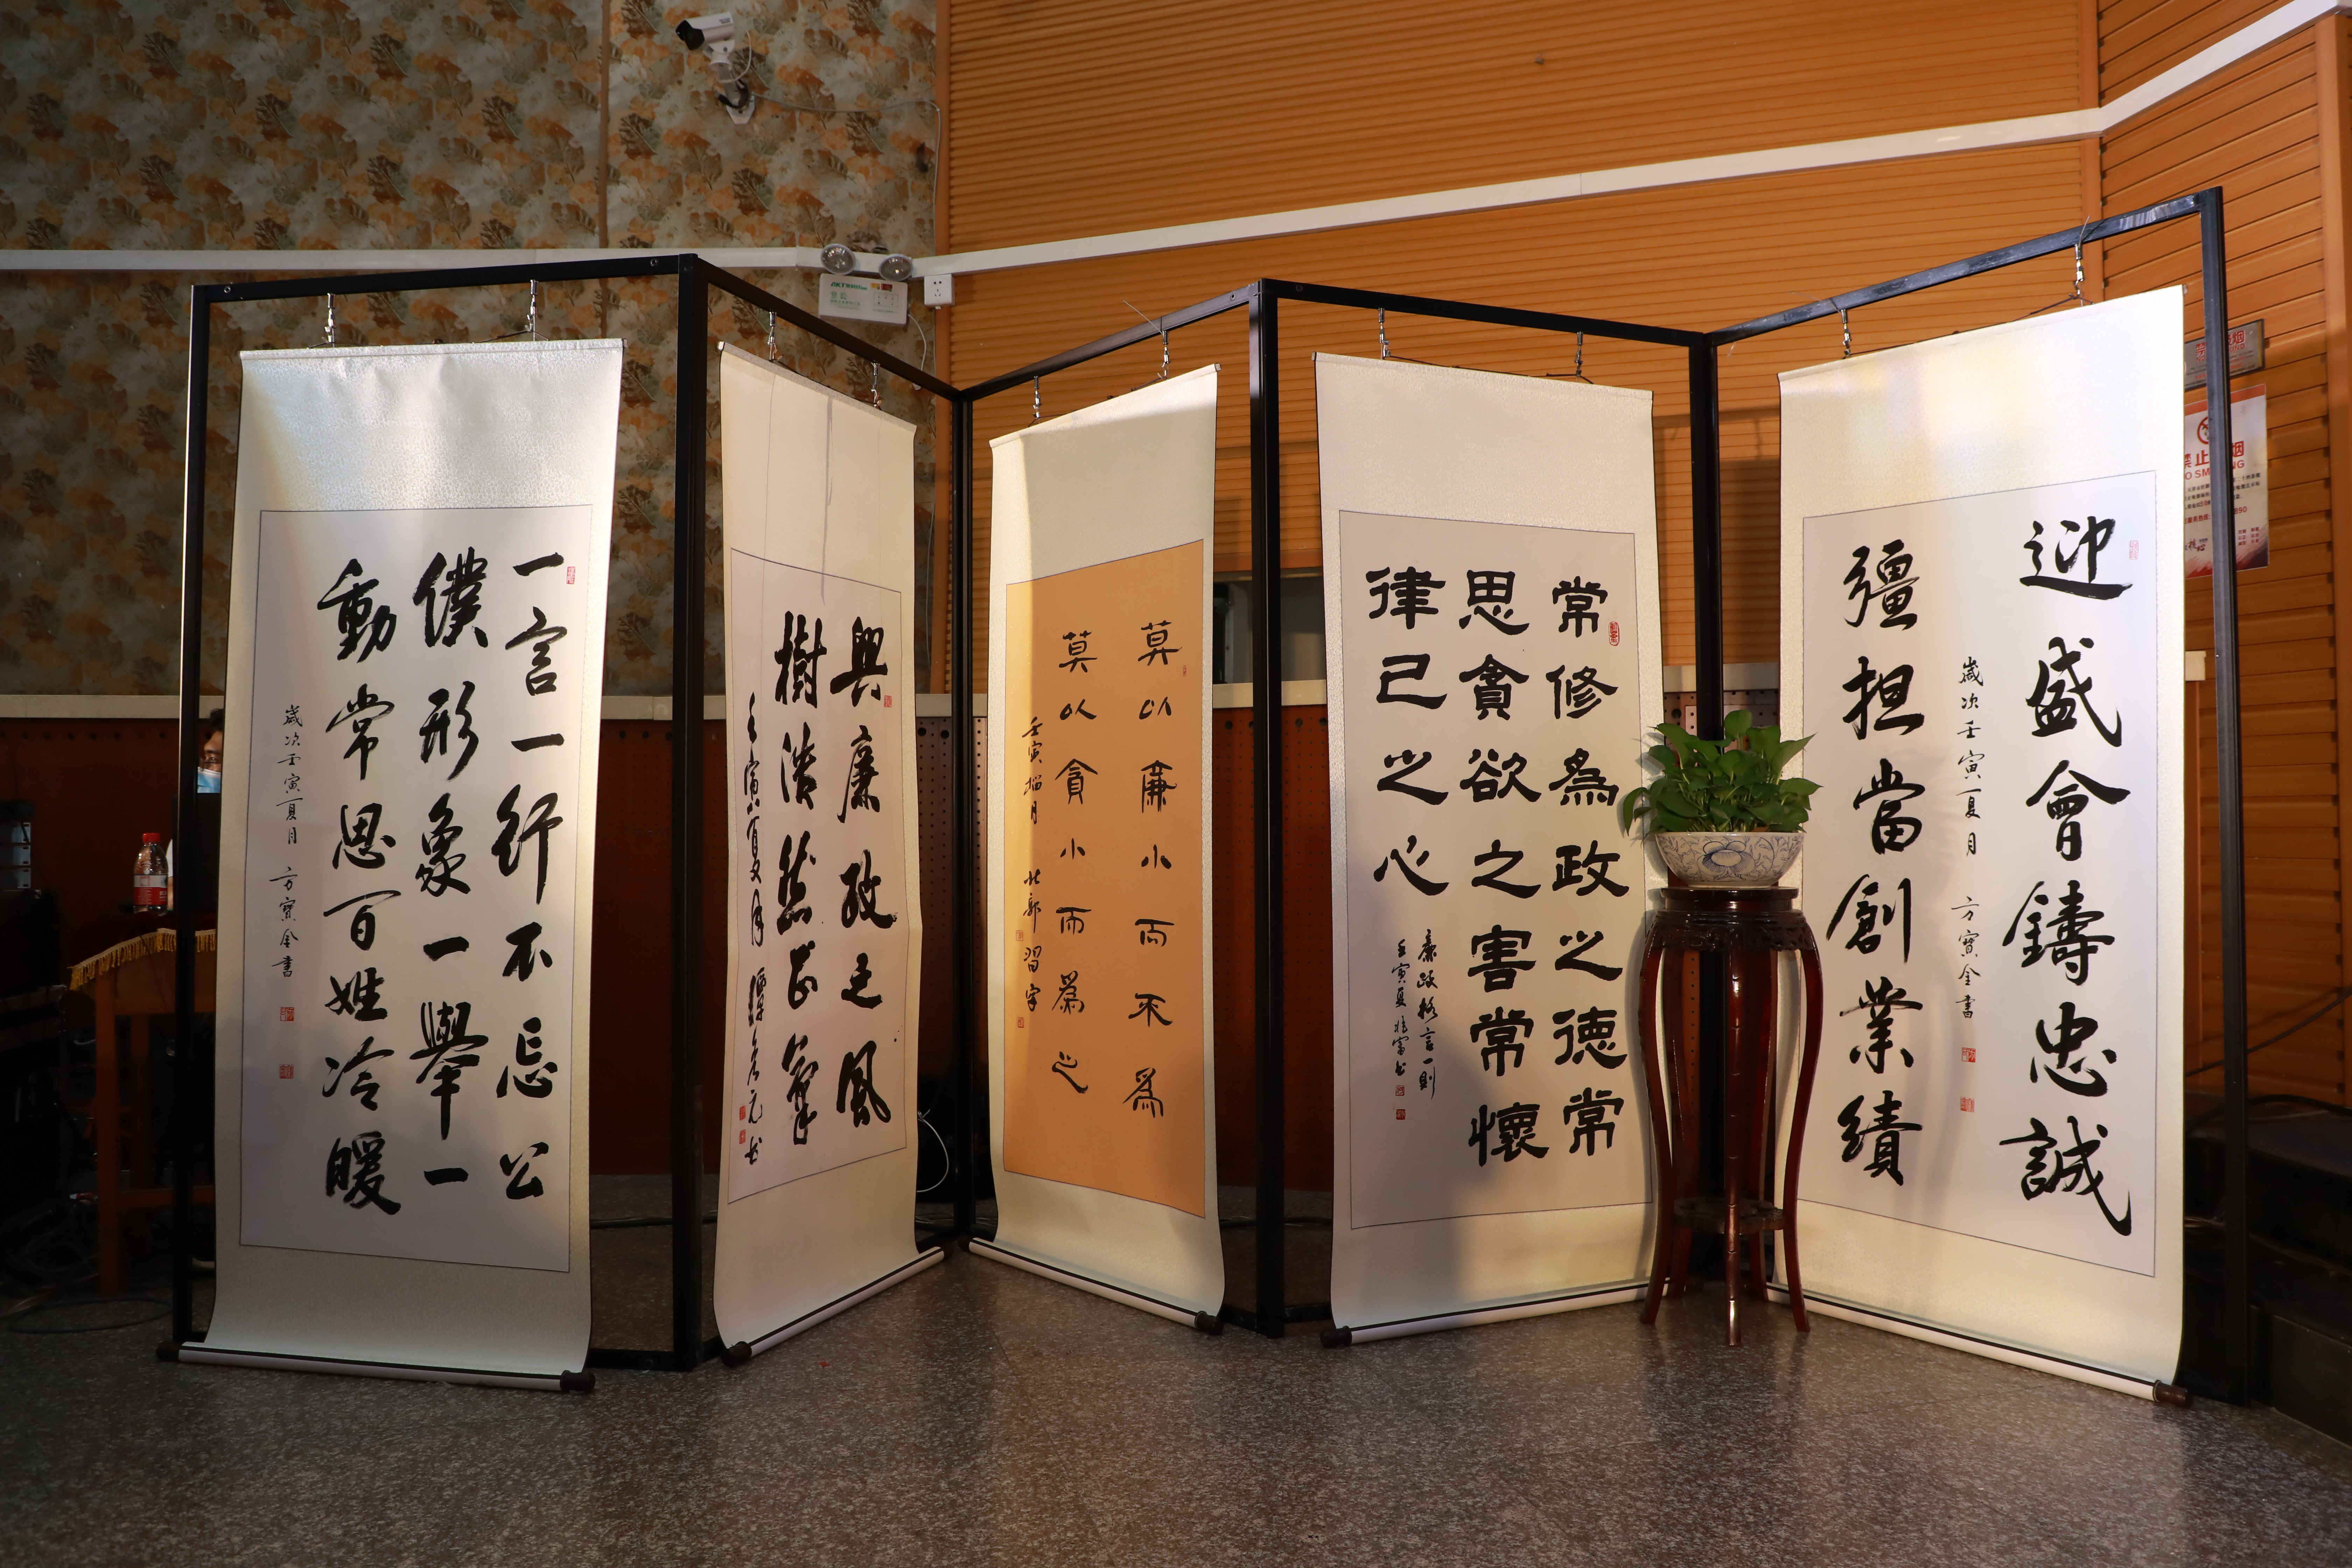 一言一行不忘公
僕形象一舉一
動常思百姓冷暖
歲次壬寅夏月 方寶金書
興廉政之風
樹清廉正氣
壬寅夏月
莫以廉小而不為
莫以貪小而為之
壬寅榴月 北郭習字
常修為政之德常
思貪欲之害常懷
律己之心
廉政格言一則
壬寅夏
迎盛會鑄忠誠
彊担當創業績
歲次壬寅夏月 方寶金書
禁止 烟